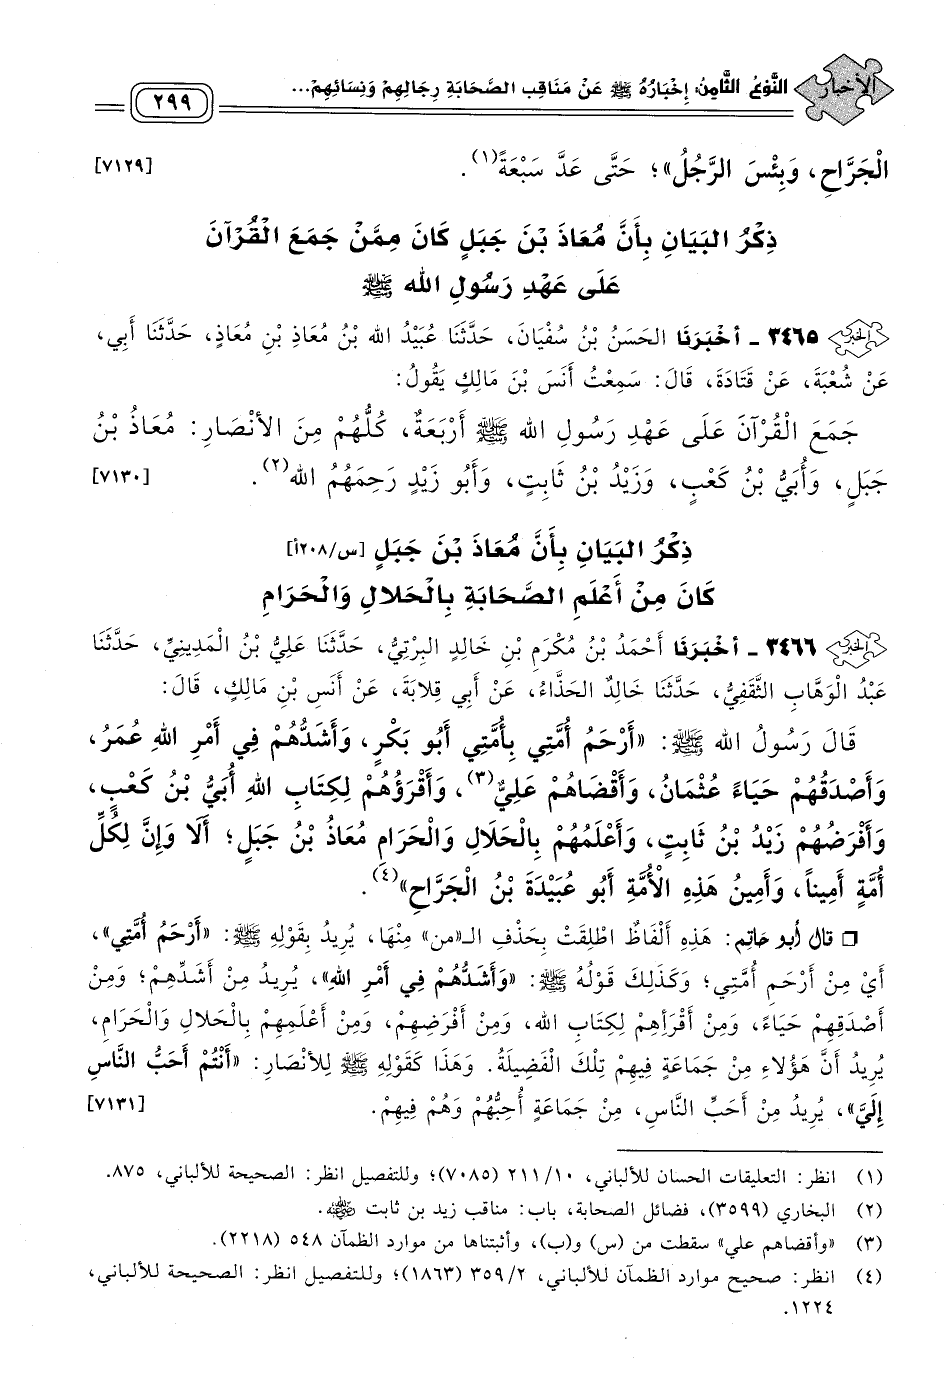 الأخبار النَّوْعُ الثَّامِنُ: إِخْبَارُهُ ﷺ عَنْ مَنَاقِبِ الصَّحَابَةِ رِجَالِهِمْ وَنِسَائِهِمْ... ٢٩٩
الْجَرَّاحِ، وَبِئْسَ الرَّجُلُ»؛ حَتَّى عَدَّ سَبْعَةً(١). [٧١٢٩]
ذِكْرُ البَيَانِ بِأَنَّ مُعَاذَ بْنَ جَبَلٍ كَانَ مِمَّنْ جَمَعَ القُرْآنَ
عَلَى عَهْدِ رَسُولِ الله ﷺ
الخبر ٣٤٦٥ - أَخْبَرَنَا الحَسَنُ بْنُ سُفْيَانَ، حَدَّثَنَا عُبَيْدُ الله بْنُ مُعَاذِ بْنِ مُعَاذٍ، حَدَّثَنَا أَبِي،
عَنْ شُعْبَةَ، عَنْ قَتَادَةَ، قَالَ: سَمِعْتُ أَنَسَ بْنَ مَالِكٍ يَقُولُ:
جَمَعَ الْقُرْآنَ عَلَى عَهْدِ رَسُولِ الله ﷺ أَرْبَعَةٌ، كُلُّهُمْ مِنَ الأَنْصَارِ: مُعَاذُ بْنُ
جَبَلٍ، وَأُبَيُّ بْنُ كَعْبٍ، وَزَيْدُ بْنُ ثَابِتٍ، وَأَبُو زَيْدٍ رَحِمَهُمُ الله(٢). [٧١٣٠]
ذِكْرُ البَيَانِ بِأَنَّ مُعَاذَ بْنَ جَبَلٍ [س/٢٠٨أ]
كَانَ مِنْ أَعْلَمِ الصَّحَابَةِ بِالْحَلَالِ وَالْحَرَامِ
الخبر ٣٤٦٦ - أَخْبَرَنَا أَحْمَدُ بْنُ مُكْرَمِ بْنِ خَالِدٍ البِرْتِيُّ، حَدَّثَنَا عَلِيُّ بْنُ الْمَدِينِيِّ، حَدَّثَنَا
عَبْدُ الْوَهَّابِ الثَّقَفِيُّ، حَدَّثَنَا خَالِدٌ الحَذَّاءُ، عَنْ أَبِي قِلابَةَ، عَنْ أَنَسِ بْنِ مَالِكٍ، قَالَ:
قَالَ رَسُولُ الله ﷺ: «أَرْحَمُ أُمَّتِي بِأُمَّتِي أَبُو بَكْرٍ، وَأَشَدُّهُمْ فِي أَمْرِ اللهِ عُمَرُ،
وَأَصْدَقُهُمْ حَيَاءً عُثْمَانُ، وَأَقْضَاهُمْ عَلِيٌّ(٣)، وَأَقْرَؤُهُمْ لِكِتَابِ اللهِ أُبَيُّ بْنُ كَعْبٍ،
وَأَفْرَضُهُمْ زَيْدُ بْنُ ثَابِتٍ، وَأَعْلَمُهُمْ بِالْحَلَالِ وَالْحَرَامِ مُعَاذُ بْنُ جَبَلٍ؛ أَلَا وَإِنَّ لِكُلِّ
أُمَّةٍ أَمِيناً، وَأَمِينُ هَذِهِ الْأُمَّةِ أَبُو عُبَيْدَةَ بْنُ الْجَرَّاحِ»(٤).
❑ قال أبو حاتم: هَذِهِ أَلْفَاظٌ اطلِقَتْ بِحَذْفِ الـ«من» مِنْهَا، يُرِيدُ بِقَوْلِهِ ﷺ: «أَرْحَمُ أُمَّتِي»،
أَيْ مِنْ أَرْحَمِ أُمَّتِي؛ وَكَذَلِكَ قَوْلُهُ ﷺ: «وَأَشَدُّهُمْ فِي أَمْرِ اللهِ»، يُرِيدُ مِنْ أَشَدِّهِمْ؛ وَمِنْ
أَصْدَقِهِمْ حَيَاءً، وَمِنْ أَقْرَأِهِمْ لِكِتَابِ الله، وَمِنْ أَفْرَضِهِمْ، وَمِنْ أَعْلَمِهِمْ بِالْحَلَالِ وَالْحَرَامِ،
يُرِيدُ أَنَّ هَؤُلَاءِ مِنْ جَمَاعَةٍ فِيهِمْ تِلْكَ الْفَضِيلَةُ. وَهَذَا كَقَوْلِهِ ﷺ لِلأَنْصَارِ: «أَنْتُمْ أَحَبُّ النَّاسِ
إِلَيَّ»، يُرِيدُ مِنْ أَحَبِّ النَّاسِ، مِنْ جَمَاعَةٍ أُحِبُّهُمْ وَهُمْ فِيهِمْ. [٧١٣١]
(١) انظر: التعليقات الحسان للألباني، ٢١١/١٠ (٧٠٨٥)؛ وللتفصيل انظر: الصحيحة للألباني، ٨٧٥.
(٢) البخاري (٣٥٩٩)، فضائل الصحابة، باب: مناقب زيد بن ثابت رضي الله عنه.
(٣) «وأقضاهم علي» سقطت من (س) و(ب)، وأثبتناها من موارد الظمآن ٥٤٨ (٢٢١٨).
(٤) انظر: صحيح موارد الظمآن للألباني، ٣٥٩/٢ (١٨٦٣)؛ وللتفصيل انظر: الصحيحة للألباني،
١٢٢٤.